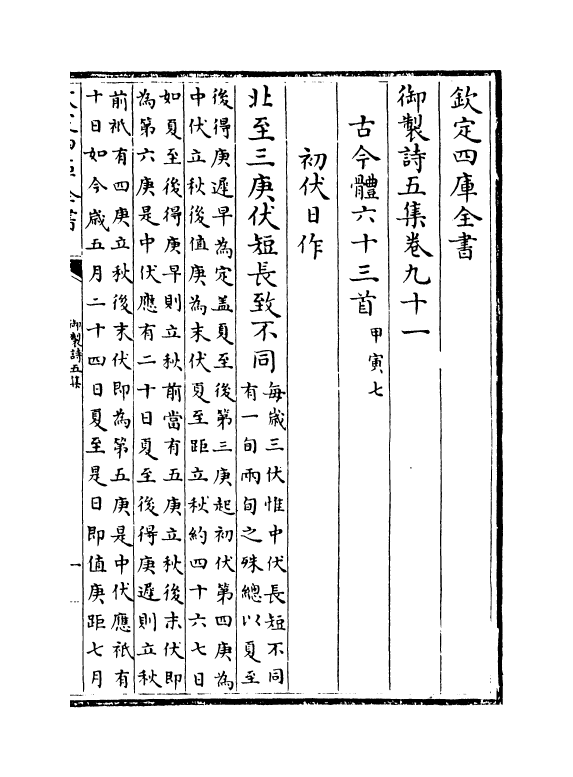 欽定四庫全書
御製詩五集卷九十一
古今體六十三首甲寅七
初伏日作
北至三庚伏短長致不同每歲三伏惟中伏長短不同
有一旬兩旬之殊總以夏至
後得庚遲早為定盖夏至後第三庚起初伏第四庚為
中伏立秋後值庚為末伏夏至距立秋約四十六七日
如夏至後得庚早則立秋前當有五庚立秋後末伏即
為第六庚是中伏應有二十日夏至後得庚遲則立秋
前祇有四庚立秋後末伏即為第五庚是中伏應祇有
十日如今歲五月二十四日夏至是日即值庚距七月
御製詩五集
一